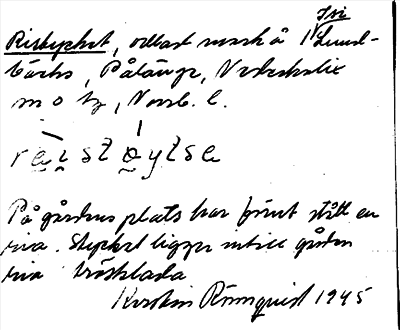 Ristycket, odlad mark å 1 Lund-
bäcks, Pålänge, Nederkalix
m o tg, Norrb. l.
På gårdens plats har förut stått en
ria. Stycket ligger intill gården
ria tröskloda
Kerstin Rönnquist 1945